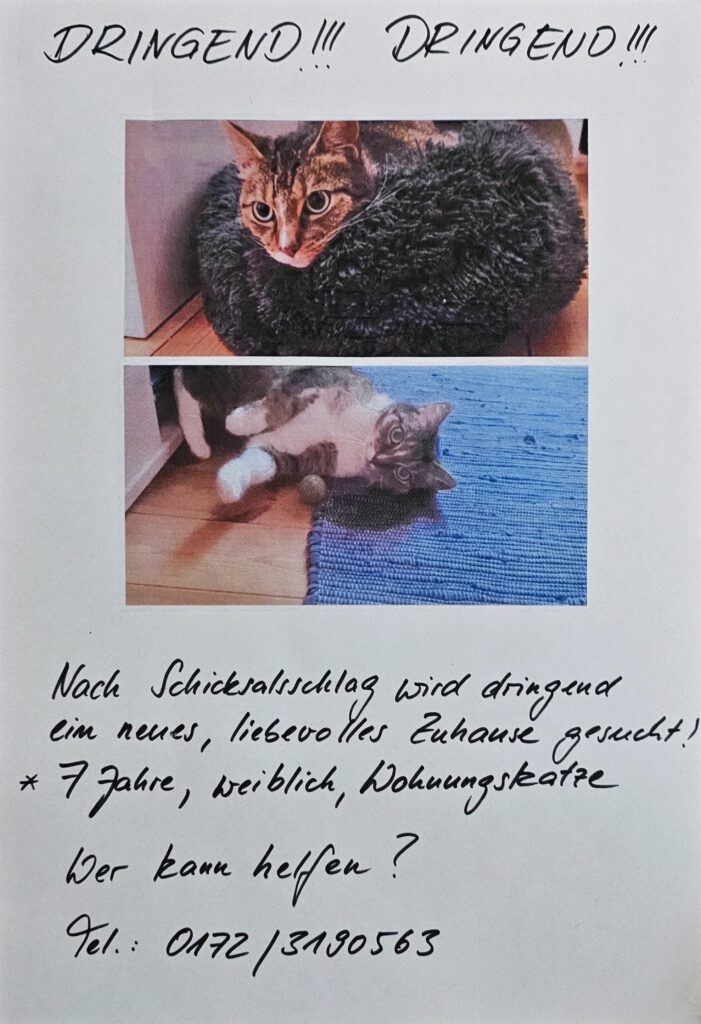 DRINGEND!!! DRINGEND!!!
Nach Schicksalsschlag wird dringend
ein neues, liebevolles Zuhause gesucht!
* 7 Jahre, weiblich, Wohnungskatze
Wer kann helfen?
Tel.: 0172/3190563